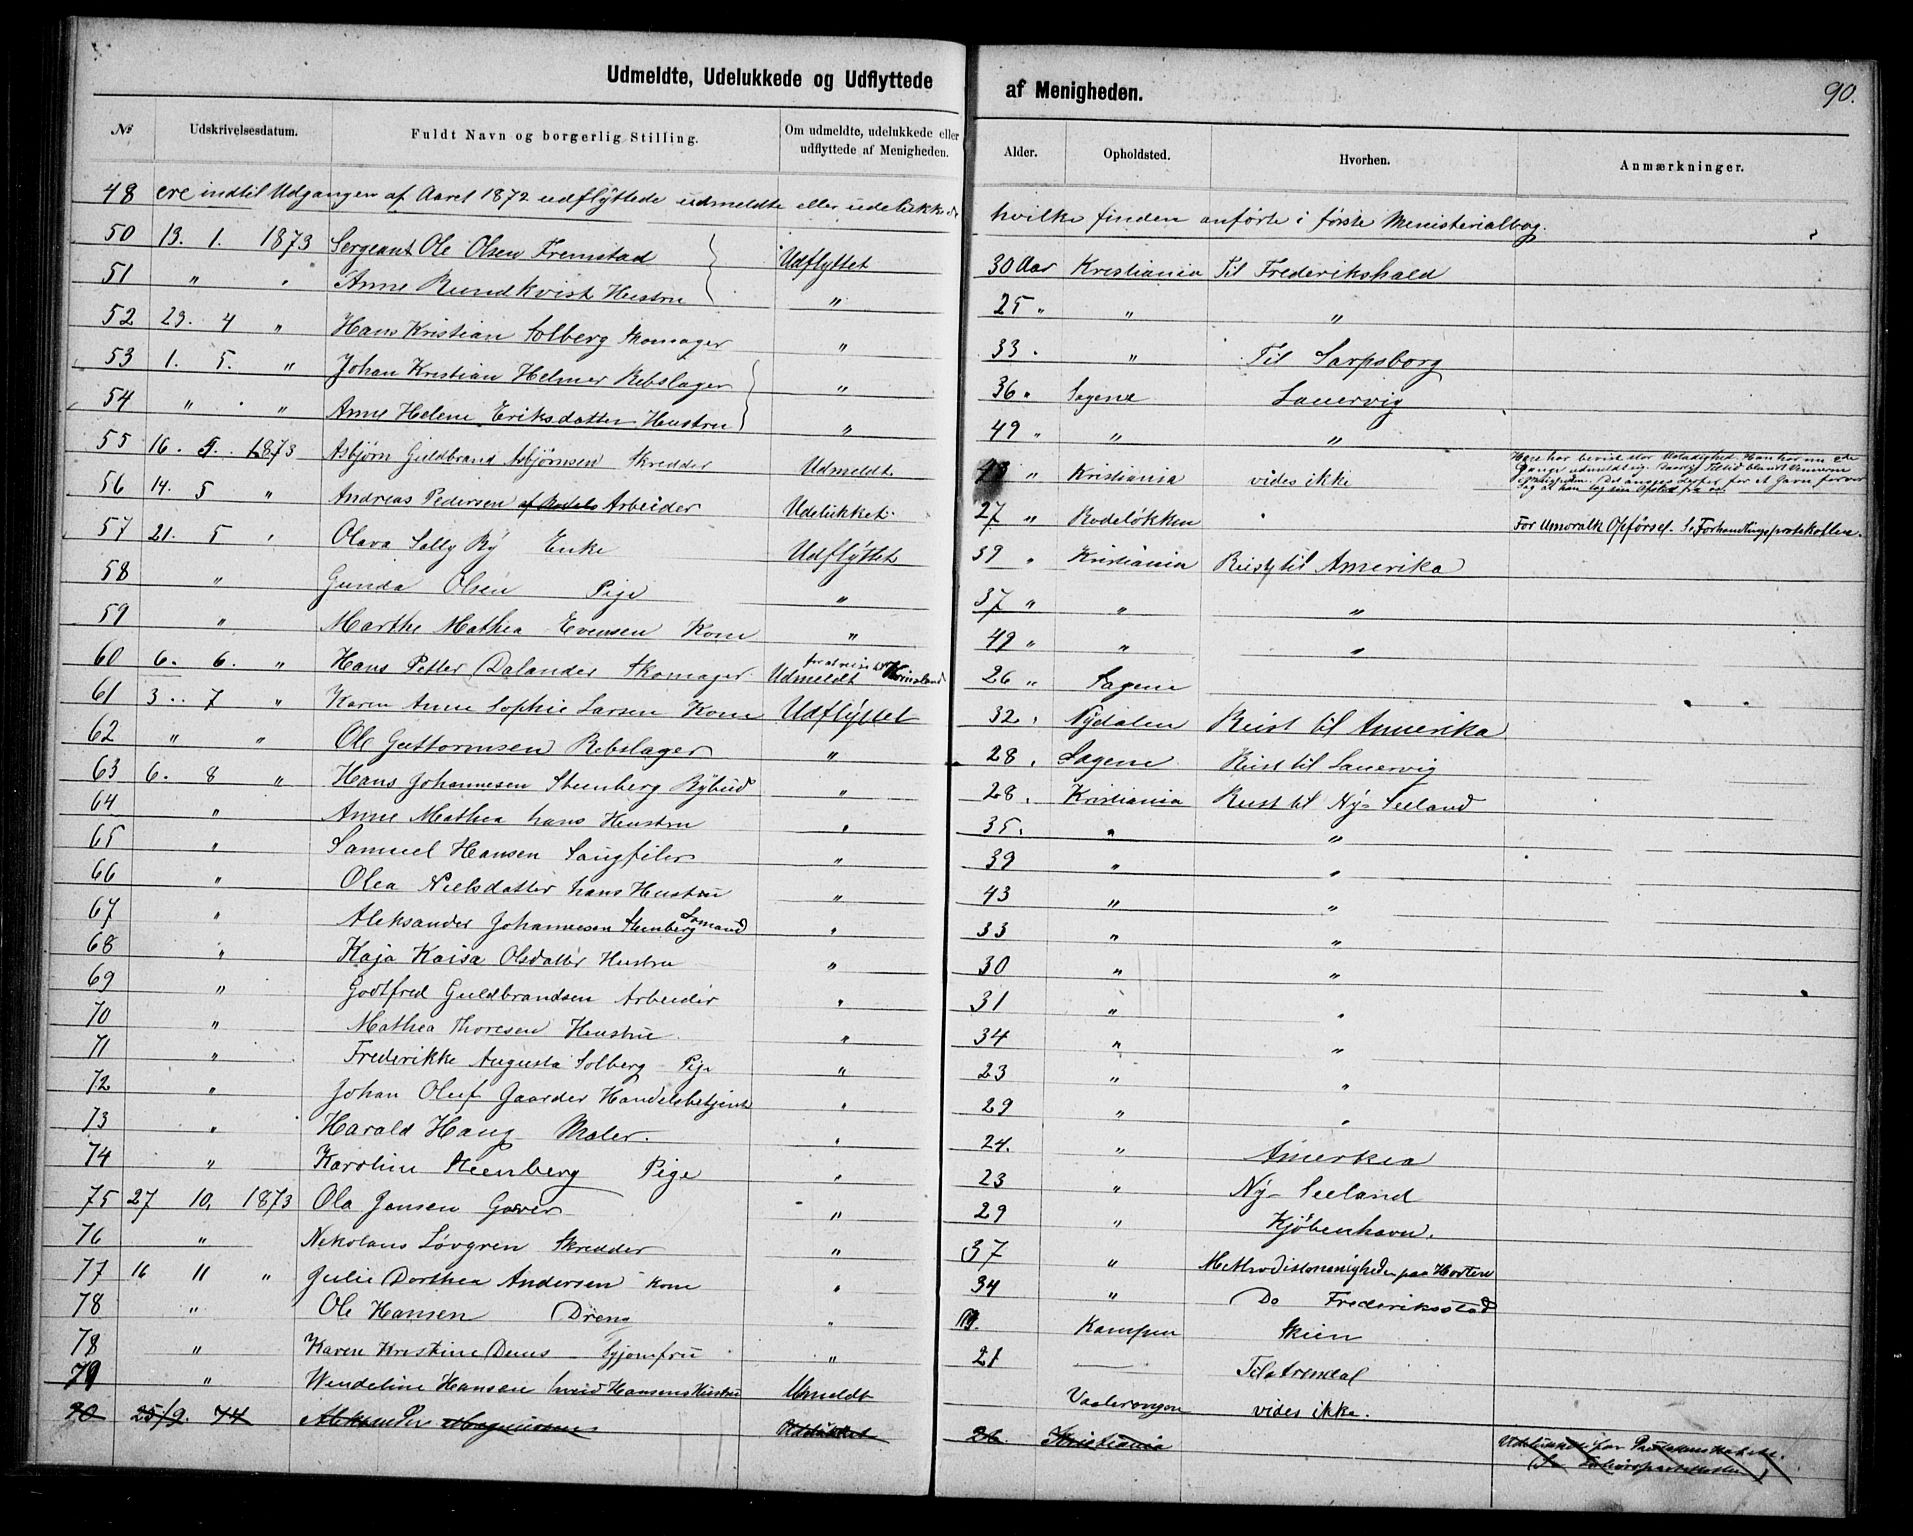 Udmeldte, Udelukkede og Udflyttede af Menigheden. 90.
No Udskrivelsesdatum. Fuldt Navn og borgerlig Stilling. Om udmeldte, udelukkede eller udflyttede af Menigheden. Alder. Opholdsted. Hvorhen. Anmærkninger.
48 ere indtil Udgangen af Aaret 1872 udflyttede udmeldte eller udelukkede hvilke finden anførte i første Ministerialbog.
50 13. 1. 1873 Sergeant Ole Olsen Fremstad Udflyttet 30 Aar Kristiania Til Frederikshald
51 " " Anne Rundkvist Hustru " 25 " " "
52 23. 4 " Hans Kristian Solberg Skomager " 33 " " Til Sarpsborg
53 1. 5. " Johan Kristian Helmer Rebslager " 36 " Sagene Laurvig
54 " " Anne Helene Eriksdatter Hustru " 49 " " "
55 16. 5. 1873 Asbjørn Guldbrand Asbjørnsen Skredder Udmeldt " Kristiania vides ikke
56 14. 5 " Andreas Pedersen Arbeider Udelukket 27 " Rodeløkken " For Umoralk Opførsel. Se Forhandlingsprotokollen.
57 21. 5 " Olava Selly By Enke Udflyttet 39 " Kristiania Reist til Amerika
58 " Gunda Olsen Pige " 37 " " "
59 " Marthe Mathea Evensen Kone " 49 " " "
60 6. 6. " Hans Petter Dalander Skomager Udmeldt 26 " Sagene
61 3. 7 " Karen Anne Sophie Larsen Kone Udflyttet 32 " Nydalen Reist til Amerika
62 " " Ole Guttormsen Rebslager " 28 " Sagene Reist til Laurvig
63 6. 8 " Hans Johannesen Stenberg Bybud " 28 " Kristiania Reist til Ny-Seeland
64 " Anne Mathea hans Hustru " 35 " " "
65 " Samuel Hansen Saugfiler " 39 " "
66 " Olea Nielsdatter hans Hustru " 43 " "
67 " Aleksander Johannesen Stenberg Sømand " 33 " "
68 " Kaja Kaisa Olsdatter Hustru " 30 " "
69 " Godtfred Guldbrandsen Arbeider " 31 " "
70 " Mathea Thoresen Hustru " 34 " "
71 " Frederikke Augusta Solberg Pige " 23 " "
72 " Johan Oluf Gaarder Handelsbetjent " 29 " "
73 " Harald Haug Maler. " 24. " Amerkia
74 " Karoline Steenberg Pige " 23 " Ny-Seeland
75 27 10, 1873 Ola Jensen Garver " 29 " Kjøbenhavn.
76 " Nikolaus Løvgren Skredder " 37 " Methodistmenigheden paa Horten
77 16 11 " Julie Dorthea Andersen Kone " 34 " Do Frederiksstad
78 " Ole Hansen Dreng " 19. Kampen Skien
78 " Karen Kristine Denes Syjomfru " 21 — Til Arendal
79 " Wendeline Hansen Hansens Hustru Umeldt Vaalerengen vides ikke.
80 25/9. 74 Aleksander Magnussen Udelukket 26 Kristiania